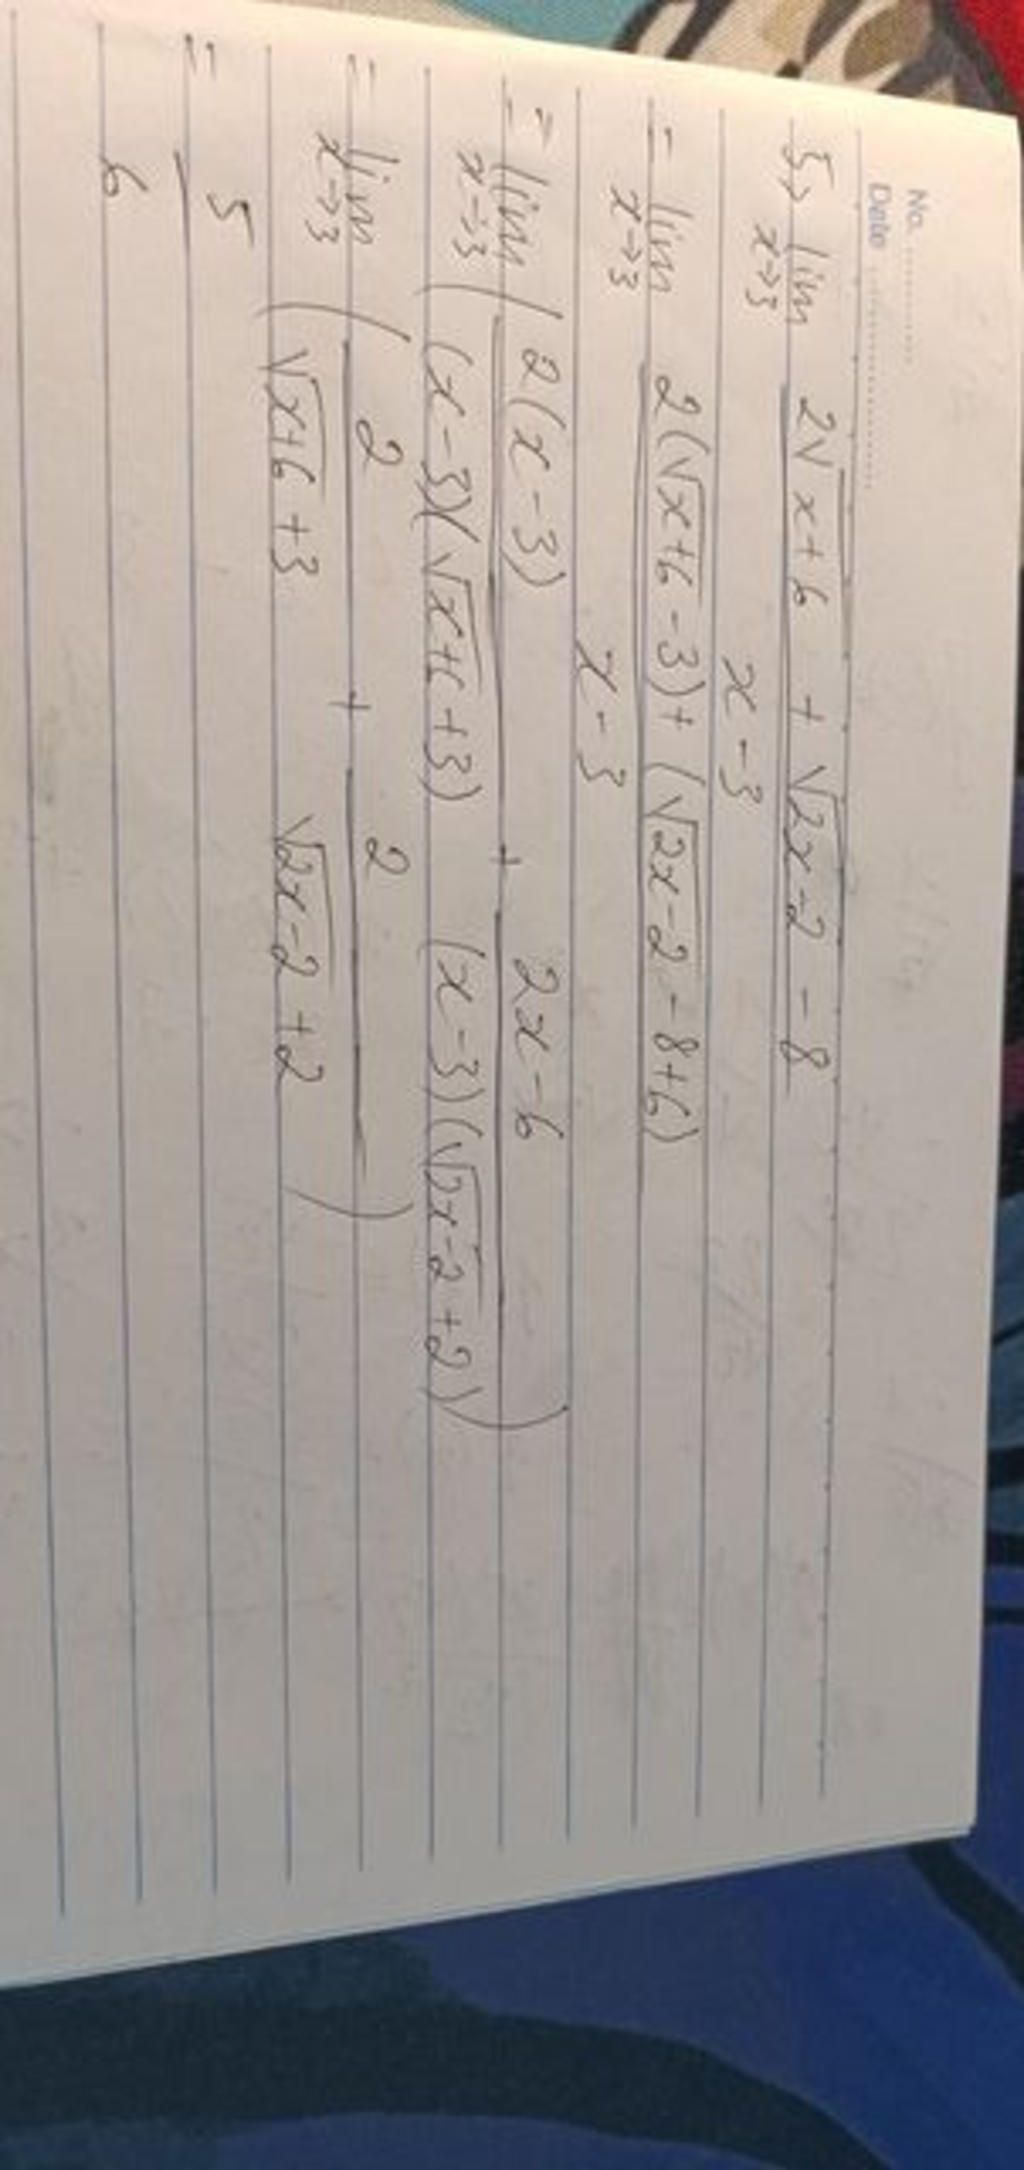 No. ............
Date ............
5> lim x→3 (2√(x+6) + √(2x-2) - 8) / (x-3)
= lim x→3 (2(√(x+6) - 3) + (√(2x-2) - 8+6)) / (x-3)
= lim x→3 (2(x-3) / ((x-3)(√(x+6) + 3)) + (2x-6) / ((x-3)(√(2x-2) + 2)))
= lim x→3 (2 / (√(x+6) + 3) + 2 / (√(2x-2) + 2))
= 5/6